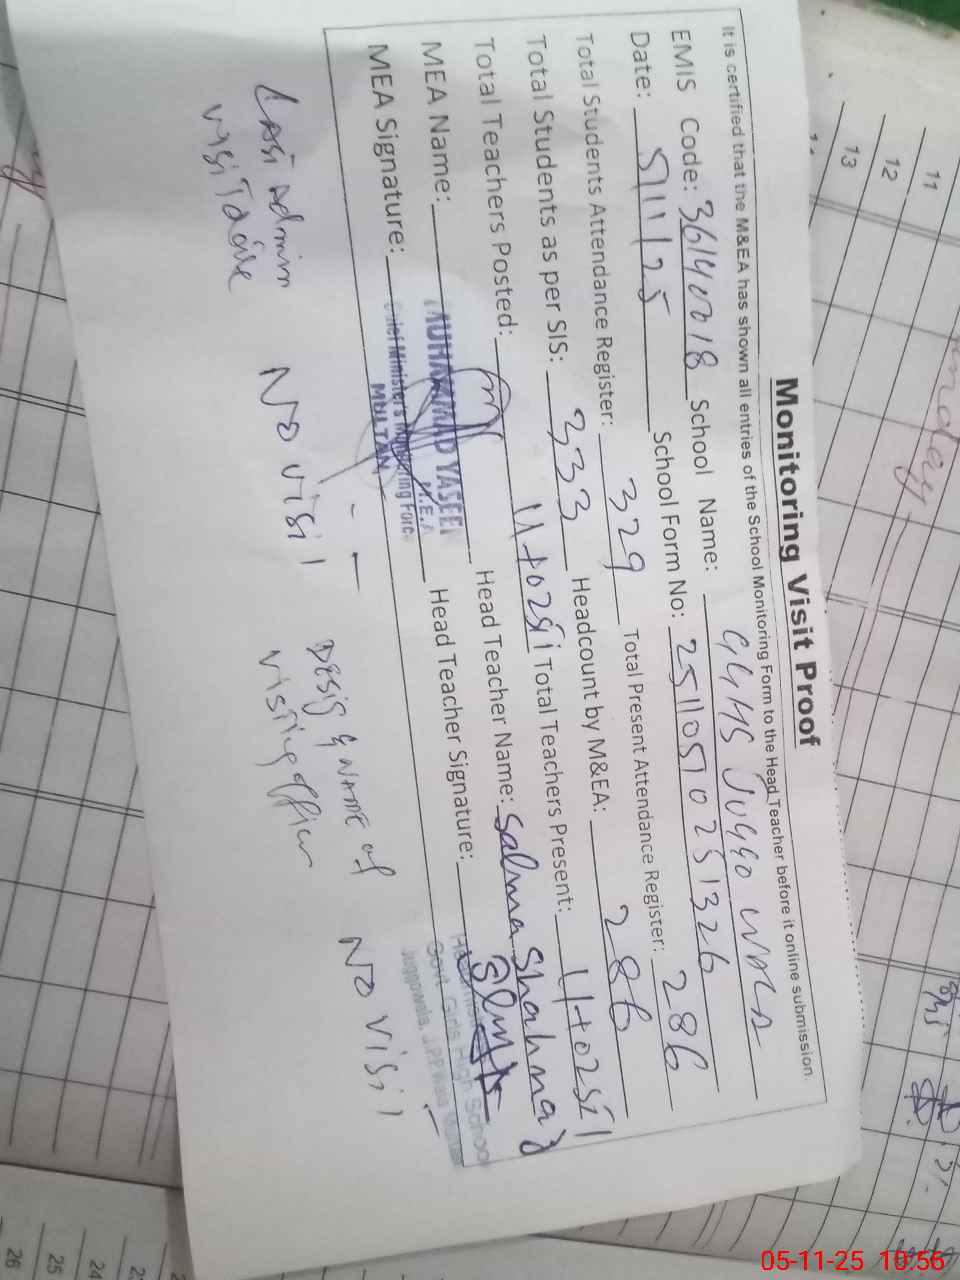 Monitoring Visit Proof
It is certified that the M&EA has shown all entries of the School Monitoring Form to the Head Teacher before it online submission.
EMIS Code: 36140018 School Name: GGHS
Date: 5/11/25 School Form No: 25110510251326
Total Students Attendance Register: 329 Total Present Attendance Register: 286
Total Students as per SIS: 333 Headcount by M&EA: 286
Total Teachers Posted: Total Teachers Present:
MEA Name: Head Teacher Name: Salma Shahnaz
MEA Signature: Head Teacher Signature:
MUHAMMAD YASEEN
M.E.A
Chief Minister's Monitoring Force
MULTAN
Govt Girls High School
Last Admin
visit Date
No visit
Desig & Name of
visiting officer
No visit
11
12
13
24
25
26
05-11-25 10:56